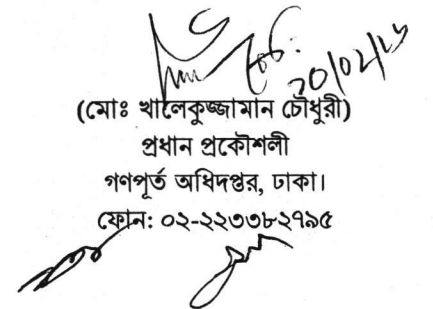 (মোঃ খালেকুজ্জামান চৌধুরী)
প্রধান প্রকৌশলী
গণপূর্ত অধিদপ্তর, ঢাকা।
ফোন: ০২-২২৩৩৮২৭৯৫